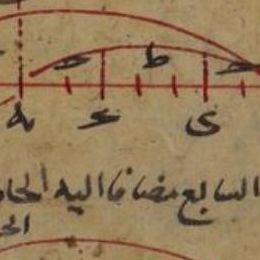 ح ط ح
ى ع ه
السابع مضافا اليه الحا
الح